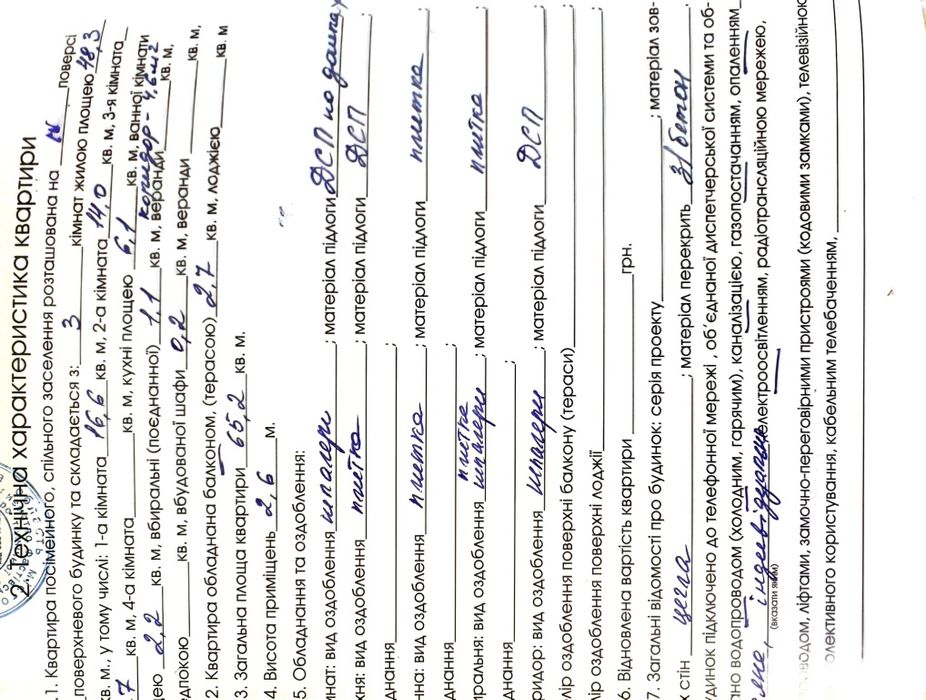 2. Технічна характеристика квартири
.1. Квартира посімейного, спільного заселення розташована на IV поверсі
поверхневого будинку та складається з: 3 кімнат жилою площею 48,3
кв. м., у тому числі: 1-а кімната 16,6 кв. м, 2-а кімната 14,0 кв. м, 3-я кімната
7 кв. м, 4-а кімната кв. м, кухні площею 6,1 кв. м, ванної кімнати
ею 2,2 кв. м, вбиральні (поєднанної) 1,1 кв. м, веранди коридор - 4,6 м2 кв. м,
дпокою кв. м, вбудованої шафи 0,2 кв. м, веранди кв. м,
2. Квартира обладнана балконом, (терасою) 2,7 кв. м, лоджією кв. м
3. Загальна площа квартири 65,2 кв. м.
4. Висота приміщень 2,6 м.
5. Обладнання та оздоблення:
імнат: вид оздоблення шпалери ; матеріал підлоги ДСП по
хня: вид оздоблення плитка ; матеріал підлоги ДСП
днання ;
нна: вид оздоблення плитка ; матеріал підлоги плитка
днання ;
иральня: вид оздоблення плитка шпалери ; матеріал підлоги плитка
днання ;
ридор: вид оздоблення шпалери ; матеріал підлоги ДСП
мір оздоблення поверхні балкону (тераси)
мір оздоблення поверхні лоджії
6. Відновлена вартість квартири грн.
7. Загальні відомості про будинок: серія проекту ; матеріал зов-
х стін цегла ; матеріал перекрить з/бетон
удинок підключено до телефонної мережі , об'єднаної диспетчерської системи та об-
дно водопроводом (холодним, гарячим), каналізацією, газопостачанням, опаленням
індивідуальне електроосвітленням, радіотрансляційною мережею,
(вказати яким)
водом, ліфтами, замочно-переговірними пристроями (кодовими замками), телевізійною
олективного користування, кабельним телебаченням,